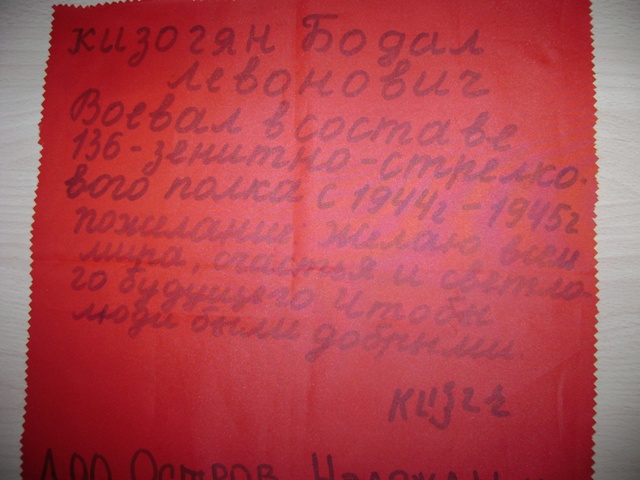 кизогян Бодал
левонович
Воевал в составе
136-зенитно-стрелко-
вого полка с 1944г-1945г
пожелание желаю всем
мира, счастья и светло-
го будущего чтобы
люди были добрыми.
кизгя
ДОО Остров Надежды